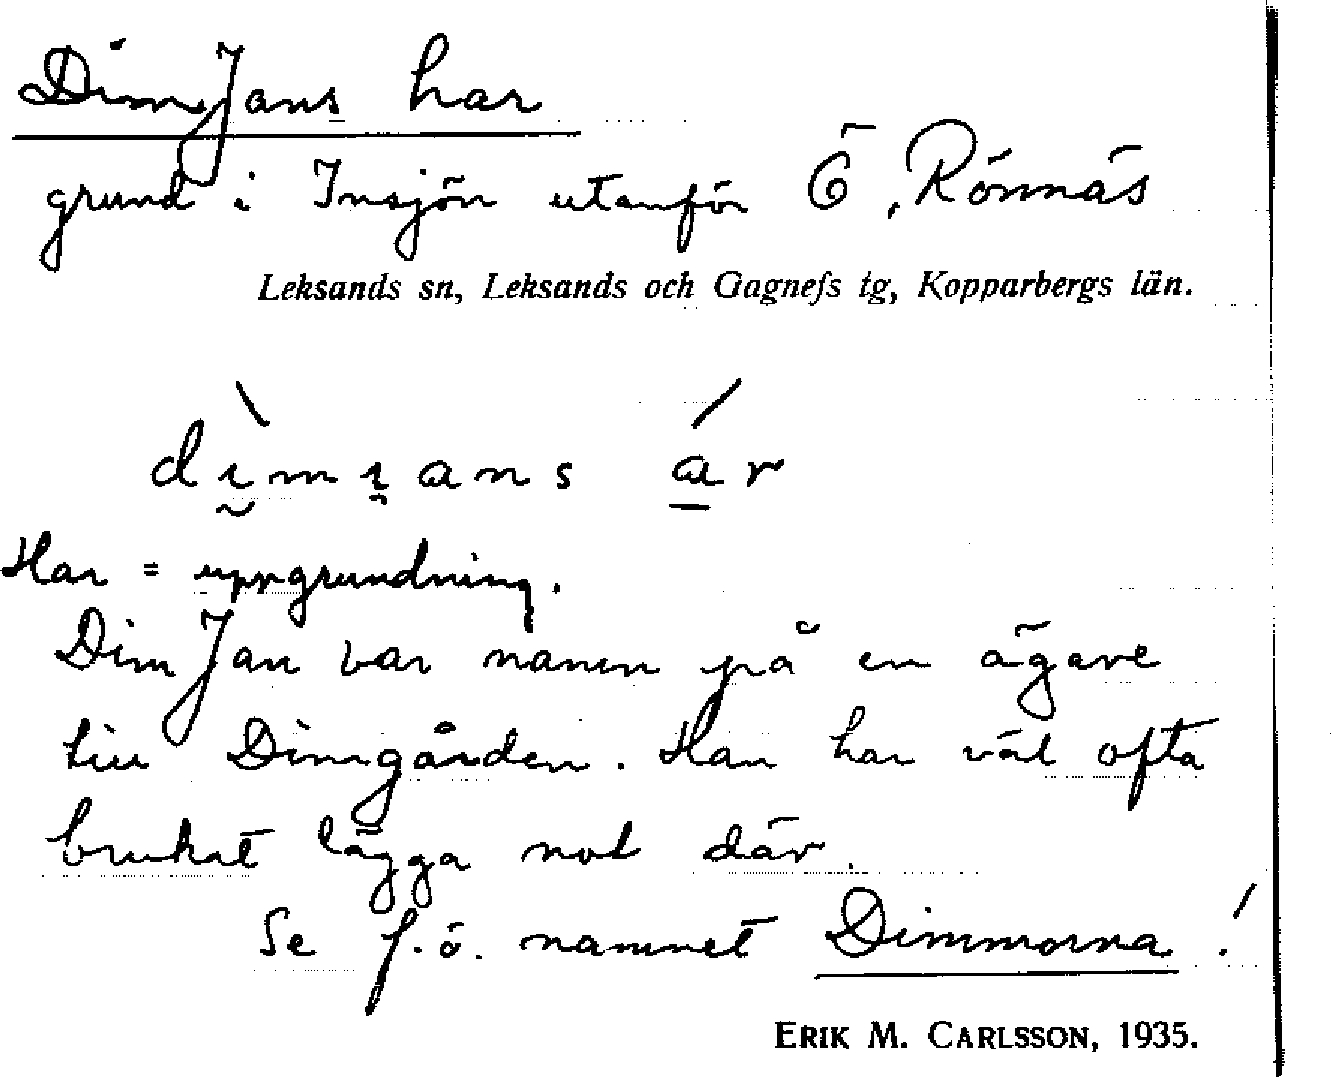 DimJans har
grund i Insjön utanför Ö. Rönnäs
Leksands sn, Leksands och Gagnefs tg, Kopparbergs län.
dı̮̀mı̯ans á̱r
Har = uppgrundning.
DimJan var namn på en ägare
till Dimgården. Han har väl ofta
brukat lägga not där.
Se f.ö. namnet Dimmorna!
ERIK M. CARLSSON, 1935.